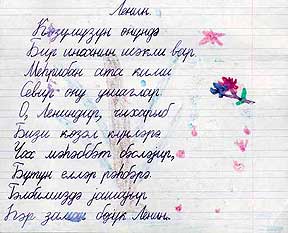 Ленин.
Көзүмүзүн өнүндә
Бир инсанын шәкли вар
Меһрибан ата кими
Севир ону ушаглар.
О, Лениндир, чыхарыб
Бизи көзәл күнләрә
Чох мәһәббәт бәсләјир,
Бүтүн елләр рәһбәрә.
Гәлбимиздә јашајыр
Һәр заман бөјүк Ленин.